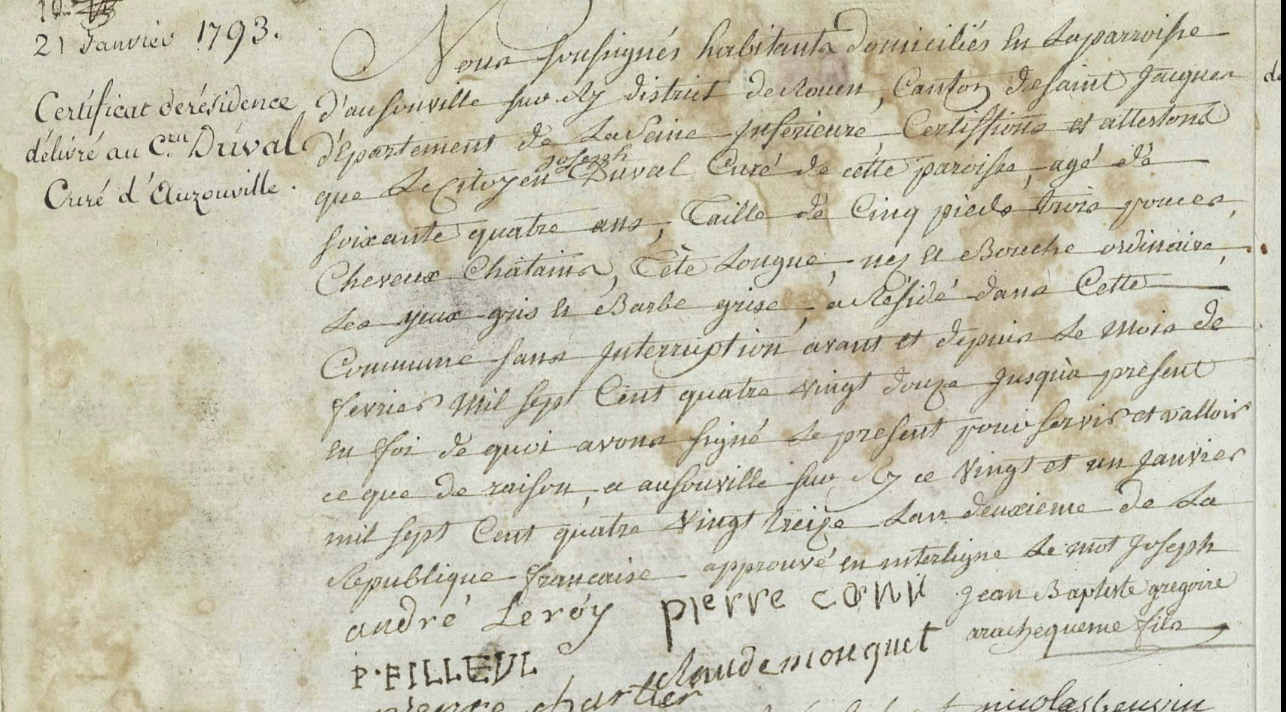 21 Janvier 1793.
Certificat de résidence
délivré au C.en Duval
Curé d'Auzouville.
Nous soussignés habitants domiciliés en La parroisse
d'ausouville sur Ry district de Rouen, Canton de saint Jacques
d'épartement de La Seine Inférieure Certiffions et attestons
que Le Citoyen Joseph Duval Curé de cette paroisse, agé de
soixante quatre ans, Taille de Cinq pieds trois pouces,
Cheveux Chatains, Tête Longue, nez et Bouche ordinaire,
Les yeux gris et Barbe grise, a Résidé dans Cette
Commune sans Interruption avant et depuis Le Mois de
fevrier Mil sept Cent quatre vingt douze Jusqu'à présent
en foi de quoi avons signé Le présent pour servir et valloir
ce que de raison, a ausouville sur Ry ce vingt et un Janvier
mil sept Cent quatre vingt treize Lan deuxieme de La
République francaise approuvé en interligne Le mot Joseph
andré Leroy pierre canu Jean Baptiste gregoire
arachequesne fils
P. FILLEUL claude mouquet
pierre chartier nicolas